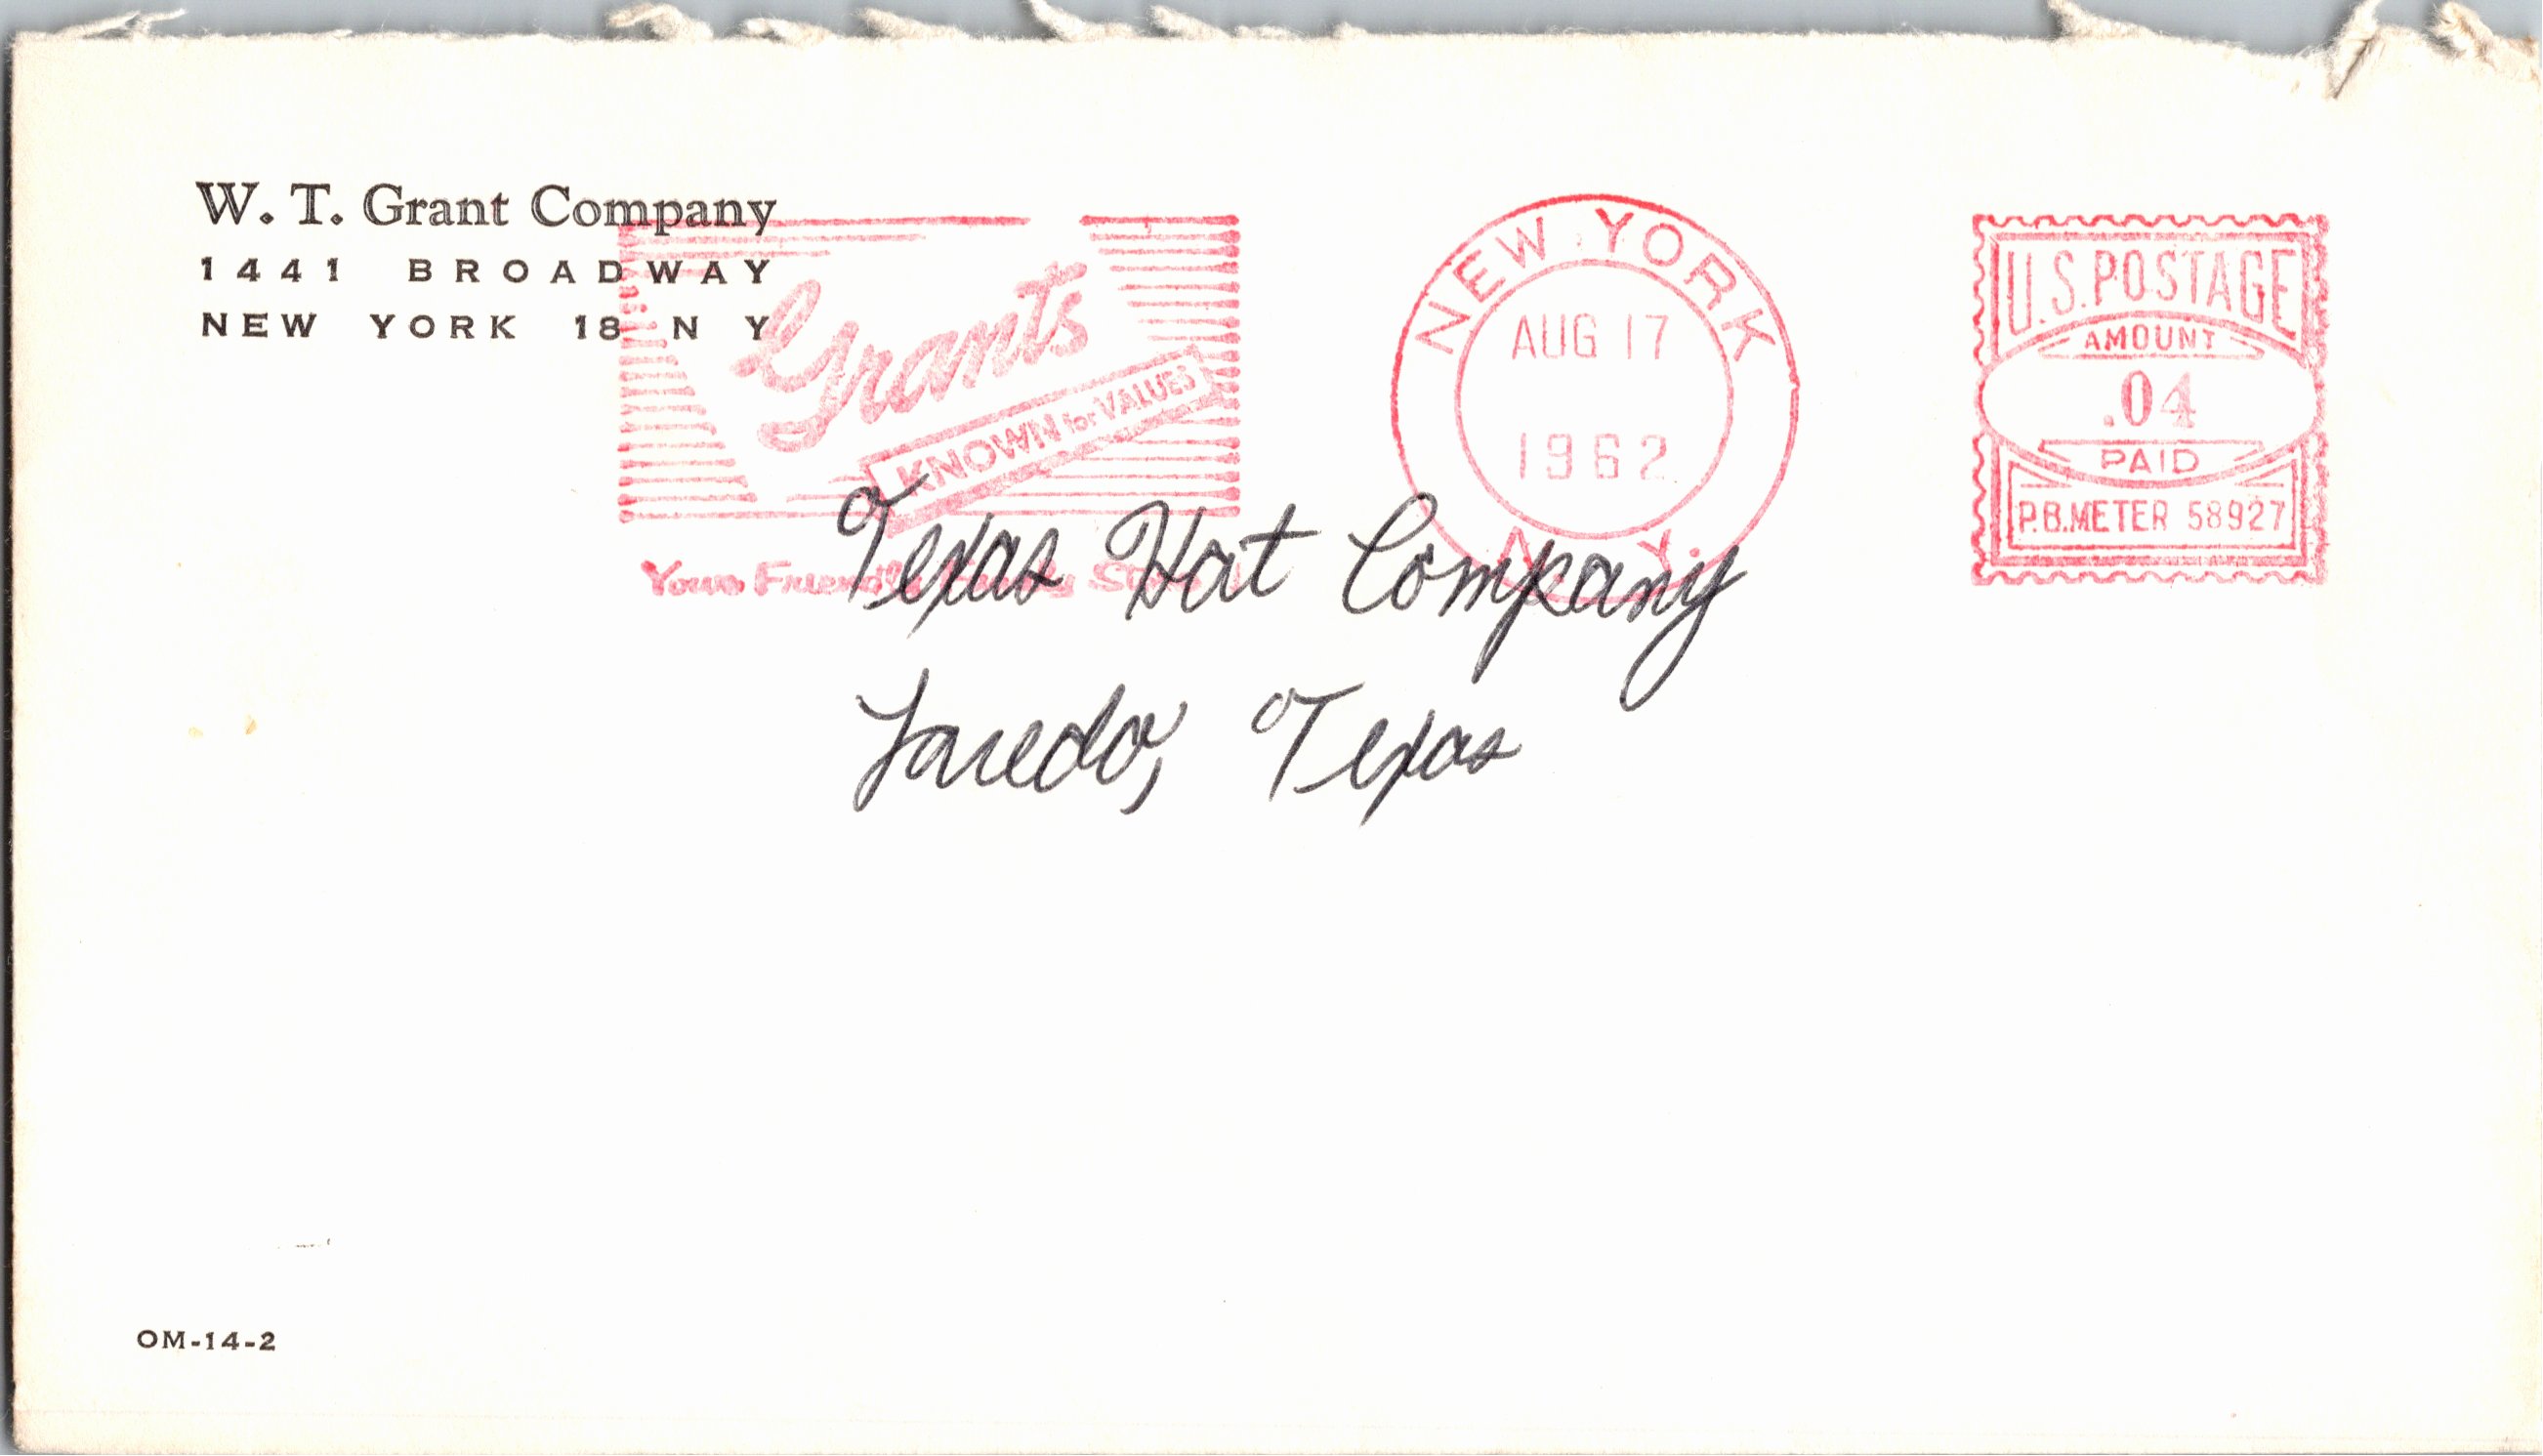 W. T. Grant Company
1441 BROADWAY
NEW YORK 18 N Y
Grants
KNOWN for VALUES
Your Friendly Family Store
NEW YORK
AUG 17
1962
N. Y.
U.S. POSTAGE
AMOUNT
.04
PAID
P.B. METER 58927
Texas Hat Company
Laredo, Texas
OM-14-2